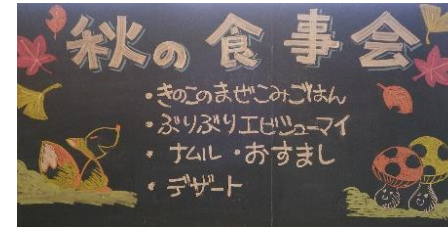 秋の食事会
・きのこのまぜこみごはん
・ぷりぷりエビシューマイ
・ナムル ・おすまし
・デザート